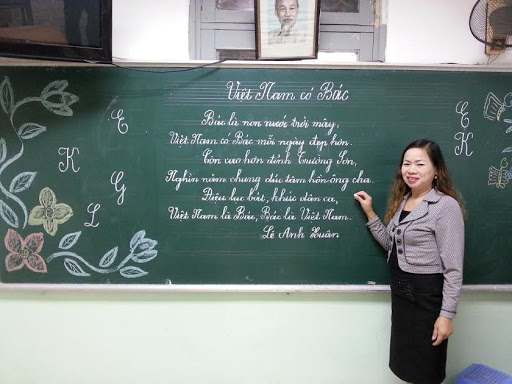 Việt Nam có Bác
Bác là non nước trời mây,
Việt Nam có Bác mỗi ngày đẹp hơn.
Còn cao hơn đỉnh Trường Sơn,
Nghìn năm chung đúc tâm hồn ông cha.
Điệu lục bát, khúc dân ca,
Việt Nam là Bác, Bác là Việt Nam.
Lê Anh Xuân
E
K
G
L
E
K